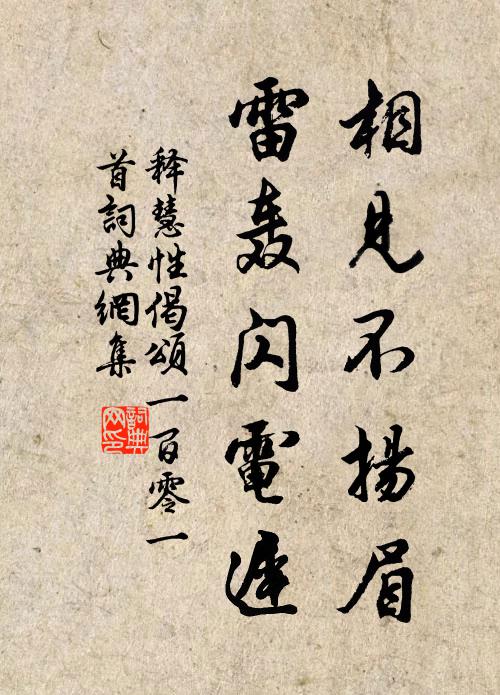 相見不揚眉
雷轰閃電遲
释慧性偈頌一百零一
首詞典網集
詞典
网印